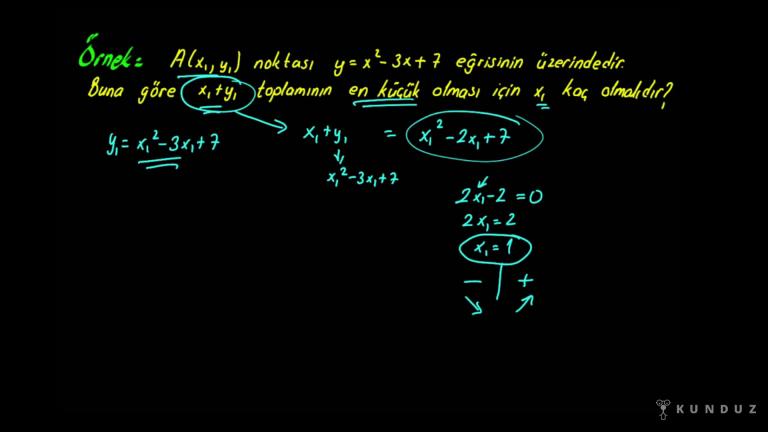 Örnek= A(x₁,y₁) noktası y=x²-3x+7 eğrisinin üzerindedir.
Buna göre x₁+y₁ toplamının en küçük olması için x₁ kaç olmalıdır?
y₁=x₁²-3x₁+7
x₁+y₁ = x₁²-2x₁+7
x₁²-3x₁+7
2x₁-2=0
2x₁=2
x₁=1
- +
KUNDUZ